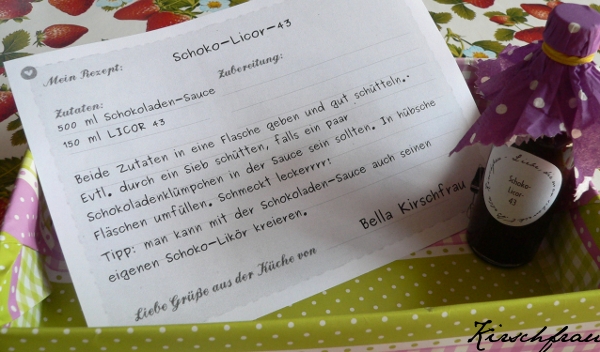 Schoko-Licor-43
Mein Rezept:
Zutaten:
Zubereitung:
500 ml Schokoladen-Sauce
150 ml LICOR 43
Beide Zutaten in eine Flasche geben und gut schütteln.
Evtl. durch ein Sieb schütten, falls ein paar
Schokoladenklümpchen in der Sauce sein sollten. In hübsche
Fläschen umfüllen. Schmeckt leckerrrr:
Tipp: man kann mit der Schokoladen-Sauce auch seinen
eigenen Schoko-Likör kreieren.
Liebe Grüße aus der Küche von
Bella Kirschfrau
Schoko-
Licor-
43
Kirschfrau